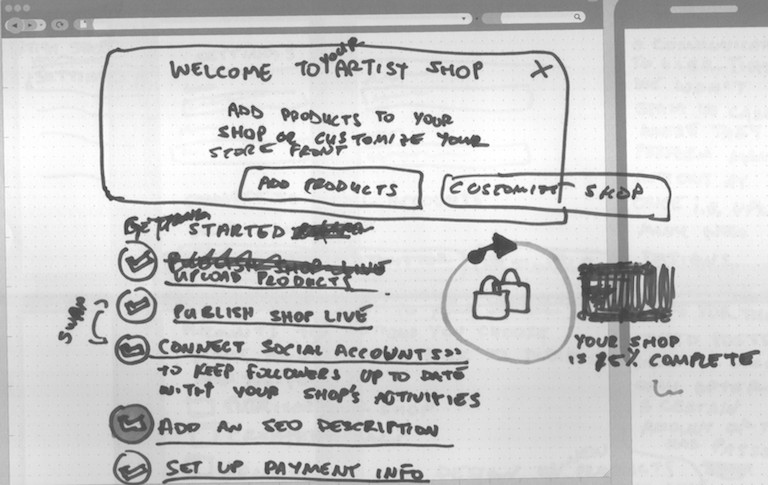 WELCOME TO your ARTIST SHOP X
ADD PRODUCTS TO YOUR
SHOP OR CUSTOMIZE YOUR
STORE FRONT
ADD PRODUCTS
CUSTOMIZE SHOP
GETTING STARTED
UPLOAD PRODUCTS
PUBLISH SHOP LIVE
SWAP
CONNECT SOCIAL ACCOUNTS>>
TO KEEP FOLLOWERS UP TO DATE
WITH YOUR SHOP'S ACTIVITIES
ADD AN SEO DESCRIPTION
SET UP PAYMENT INFO
YOUR SHOP
IS 85% COMPLETE